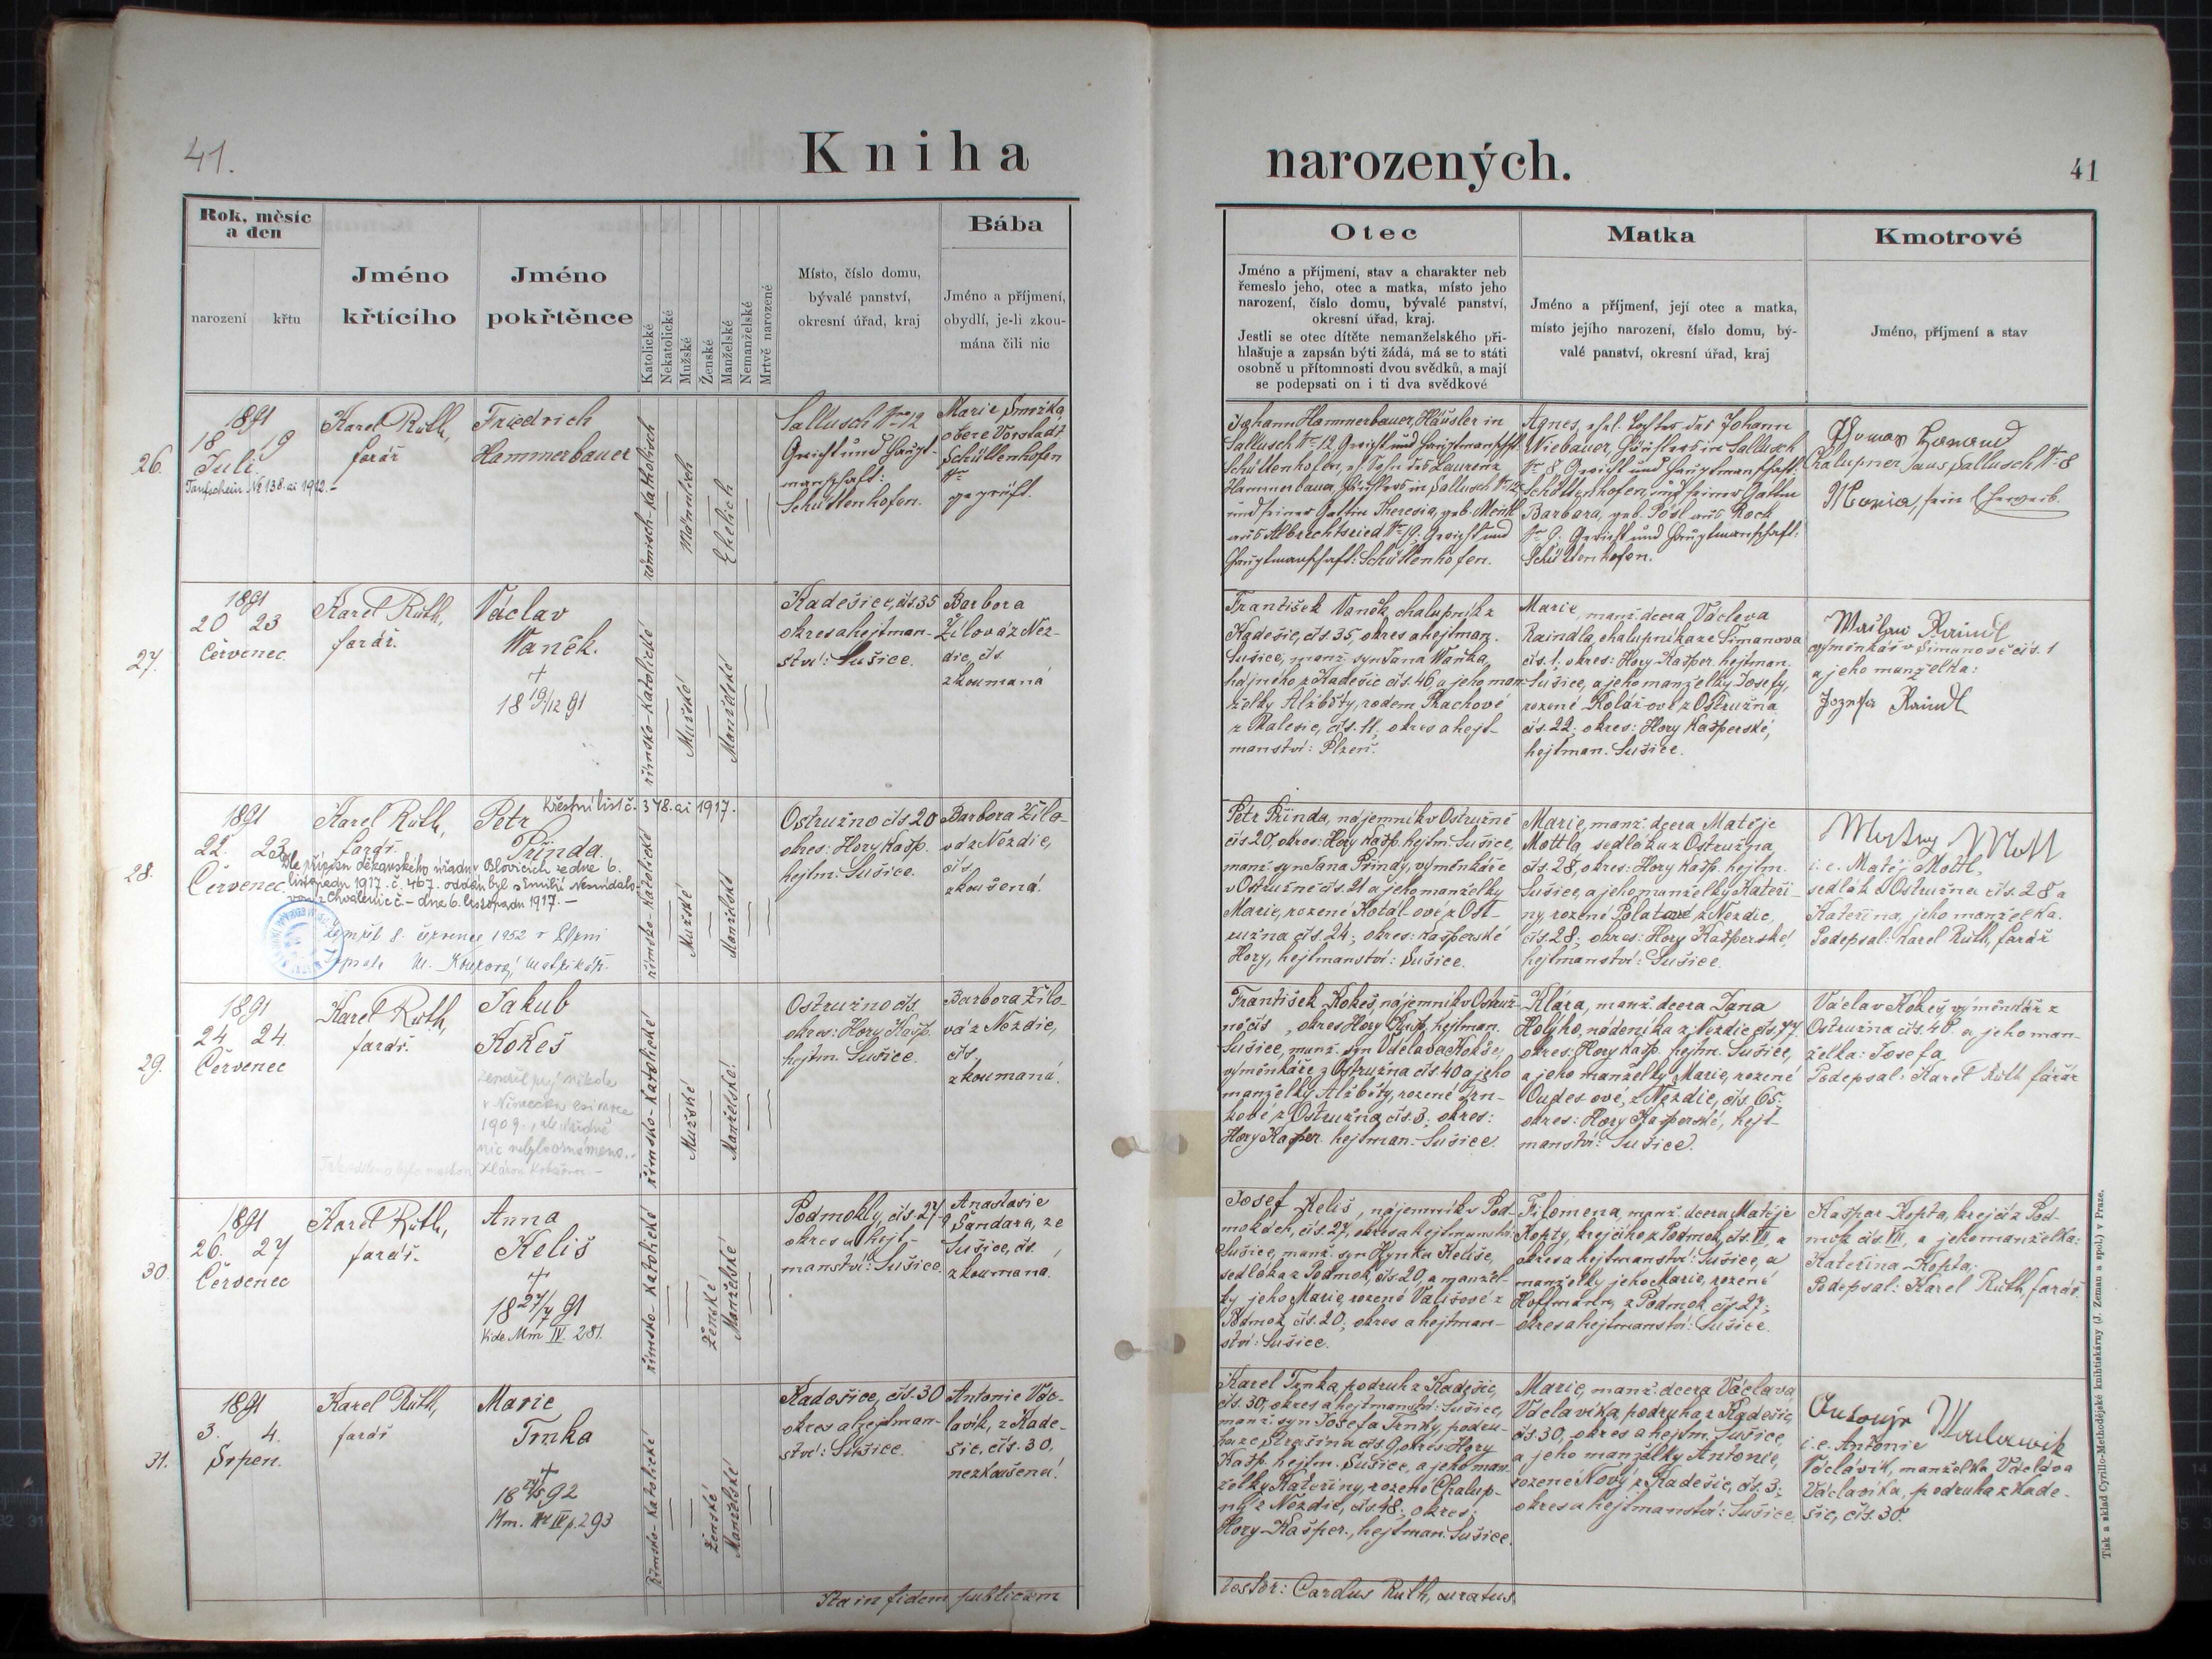 41.
Kniha
narozených.
41
Rok, měsíc
a den
narození
křtu
Jméno
křtícího
Jméno
pokřtěnce
Katolické
Nekatolické
Mužské
Ženské
Manželské
Nemanželské
Mrtvě narozené
Místo, číslo domu,
bývalé panství,
okresní úřad, kraj
Bába
Jméno a příjmení,
obydlí, je-li zkou-
mána čili nic
Otec
Jméno a příjmení, stav a charakter neb
řemeslo jeho, otec a matka, místo jeho
narození, číslo domu, bývalé panství,
okresní úřad, kraj.
Jestli se otec dítěte nemanželského při-
hlašuje a zapsán býti žádá, má se to státi
osobně u přítomnosti dvou svědků, a mají
se podepsati on i ti dva svědkové
Matka
Jméno a příjmení, její otec a matka,
místo jejího narození, číslo domu, bý-
valé panství, okresní úřad, kraj
Kmotrové
Jméno, příjmení a stav
26.
1891
18 19
Juli.
Taufschein № 138. ai 1912.-
Karel Rüth,
farář
Friedrich
Hammerbauer
römisch-katholisch
Männlich
Ehelich
Sallusch Nro 12
Gericht und Haupt-
manschaft:
Schüttenhofen.
Marie Smržka
obere Vorstadt
Schüttenhofen
Nr
geprüft.
Johann Hammerbauer, Häusler in
Sallusch Nr. 12, Gericht und Hauptmanschft.
Schüttenhofen, eh. Sohn des Laurenz
Hammerbauer, Häuslers in Sallusch Nr. 12
und seiner Gattin Theresia, geb.
aus Albrechtsried Nr. 19; Gericht und
Hauptmanschaft: Schüttenhofen.
Agnes, ehel. Tochter des Johann
Wiebauer, Häuslers in Sallusch
Nr. 8, Gericht und Hauptmanschaft:
Schüttenhofen, und seiner Gattin
Barbara, geb. Pösl aus Rock
Nr. 9. Gericht und Hauptmanschaft:
Schüttenhofen.
Thomas
Chalupner aus Sallusch Nr. 8
Maria, sein Eheweib.
27.
1891
20 23
Červenec.
Karel Rüth,
farář.
Václav
Waněk.
†
18 19/12 91
římsko-katolické
Mužské
Manželské
Kadešice, čís. 35
okres a hejtman-
ství: Sušice.
Barbora
Žílová z Nez-
dic, čís.
zkoumaná
František Vaněk, chalupník z
Kadešic, čís. 35, okres a hejtman.
Sušice, manž. syn Jana Waňka,
hajného z Kadešic čís. 46 a jeho man-
želky Alžběty, rodem Prachové
z Malesic, čís. 11, okres a hejt-
manství: Plzeň.
Marie, manž. dcera Václava
Raindla, chalupníka ze Šimanova
čís. 1. okres: Hory Kašper. hejtman.
Sušice, a jeho manželky Josefy,
rozené Kolář-ové z Ostružna
čís. 22. okres: Hory Kašperské,
hejtman. Sušice.
Wáclaw Raindl
výměnkář v Šimanově čís. 1
a jeho manželka:
Raindl
28.
1891
22. 23.
Červenec
Karel Rüth,
farář.
Křestní list č. 378. ai 1917.
Petr
Přinda.
Dle přípisu děkanského úřadu v Blovicích ze dne 6.
listopadu 1917. č. 467. oddán byl s Emilií
z Chválenic č - dne 6. listopadu 1917. -
zemřel 8. července 1952 v Plzni
římsko-katolické
Mužské
Manželské
Ostružno čís 20
okres: Hory Kašp.
hejtm: Sušice.
Barbora Žílo-
vá z Nezdic,
čís
zkoušená.
Petr Přinda, nájemník v Ostružně
čís 20, okres: Hory Kašp. hejtm. Sušice,
manž. syn Jana Přindy, výměnkáře
v Ostružně čís. 21 a jeho manželky
Marie, rozené Kotál-ové z Ost-
ružna čís. 24; okres: Kašperské
Hory, hejtmanství: Sušice.
Marie, manž. dcera Matěje
Mottla, sedláka z Ostružna,
čís. 28, okres: Hory Kašp. hejtm.
Sušice, a jeho manželky Kateři-
ny, rozené Polatové, z Nezdic,
čís. 28; okres: Hory Kašperské,
hejtmanství: Sušice.
i. e. Matěj Mottl,
sedlák z Ostružna čís. 28 a
Kateřina, jeho manželka.
Podepsal: Karel Rüth, farář
29.
1891
24 24.
Červenec
Karel Rüth,
farář.
Jakub
Kokeš
Zemřel prý někde
v Německu asi roce
1909.
římsko-katolické
Mužské
Manželské
Ostružno čís.
okres: Hory Kašp.
hejtm. Sušice.
Barbora Žílo-
vá z Nezdic,
čís.
zkoumaná.
František Kokeš, nájemník v Ostruž-
ně čís , okres Hory Kašp, hejtman.
Sušice, manž. syn Václava Kokše,
výměnkáře z Ostružna čís 40 a jeho
manželky Alžběty, rozené Trn-
kové z Ostružna, čís. 3. okres:
Hory Kašper. hejtman. Sušice.
Klára, manž. dcera Jana
Holýho, nádeníka z Nezdic čís. 77.
okres: Hory Kašp. hejtm. Sušice,
a jeho manželky Marie, rozené
Oudesové, z Nezdic, čís. 65.
okres: Hory Kašperské, hejt-
manství: Sušice.
Václav Kokeš, výměnkář z
Ostružna čís. 40. a jeho man-
želka: Josefa
Podepsal: Karel Rüth farář
30.
1891
26. 27
Červenec
Karel Rüth,
farář.
Anna
Keliš
†
18 27/7 91
Vide Mm IV. 281.
římsko-katolické
Ženské
Manželské
Podmokly, čís. 27
okres a hejt-
manství: Sušice.
Anastasie
Šandara, ze
Sušice, čís.
zkoumaná.
Josef Keliš, nájemník v Pod-
moklech, čís. 27, okres a hejtmanství:
Sušice, manž. syn Hynka Keliše,
sedláka z Podmok, čís. 20, a manžel-
ky jeho Marie, rozené Vališové z
Podmok, čís. 20, okres a hejtman-
ství: Sušice.
Filomena, manž. dcera Matěje
Kopty, krejčího z Podmok, čís. VII, a
okres a hejtmanství: Sušice, a
manželky jeho Marie, rozené
Hoffmann, z Podmok, čís. 27;
okres a hejtmanství: Sušice.
Kašpar Kopta, krejčí z Pod-
mok čís. VII, a jeho manželka:
Kateřina Kopta;
Podepsal: Karel Rüth, farář.
31.
1891
3. 4.
Srpen.
Karel Rüth,
farář
Marie
Trnka
†
92
Mm. IV p. 293
Římsko-katolické
Ženské
Manželské
Kadešice, čís. 30
okres a hejtman-
ství: Sušice.
Antonie Vác-
lavík, z Kade-
šic, čís. 30,
nezkoušená.
Karel Trnka, podruh z Kadešic,
čís. 30, okres a hejtmanství: Sušice,
manž. syn Josefa Trnky, podru-
ha ze Strašína čís. 9, okres: Hory
Kašp. hejtm. Sušice, a jeho man-
želky Kateřiny, rozené Chalup-
né z Nezdic, čís. 48; okres,
Hory-Kašper., hejtman. Sušice.
Marie, manž. dcera Václava
Václavíka, podruha z Kadešic,
čís. 30, okres a hejtm. Sušice,
a jeho manželky Antonie,
rozené Nový z Kadešic, čís. 3;
okres a hejtmanství: Sušice.
Antonje Waclawik
i. e. Antonie
Václavík, manželka Václava
Václavíka, podruha z Kade-
šic, čís. 30.
Ita in fidem publicam
testor: Carolus Rüth, curatus.
Tisk a sklad Cyrillo-Methodějské knihtiskárny (J. Zeman a spol.) v Praze.